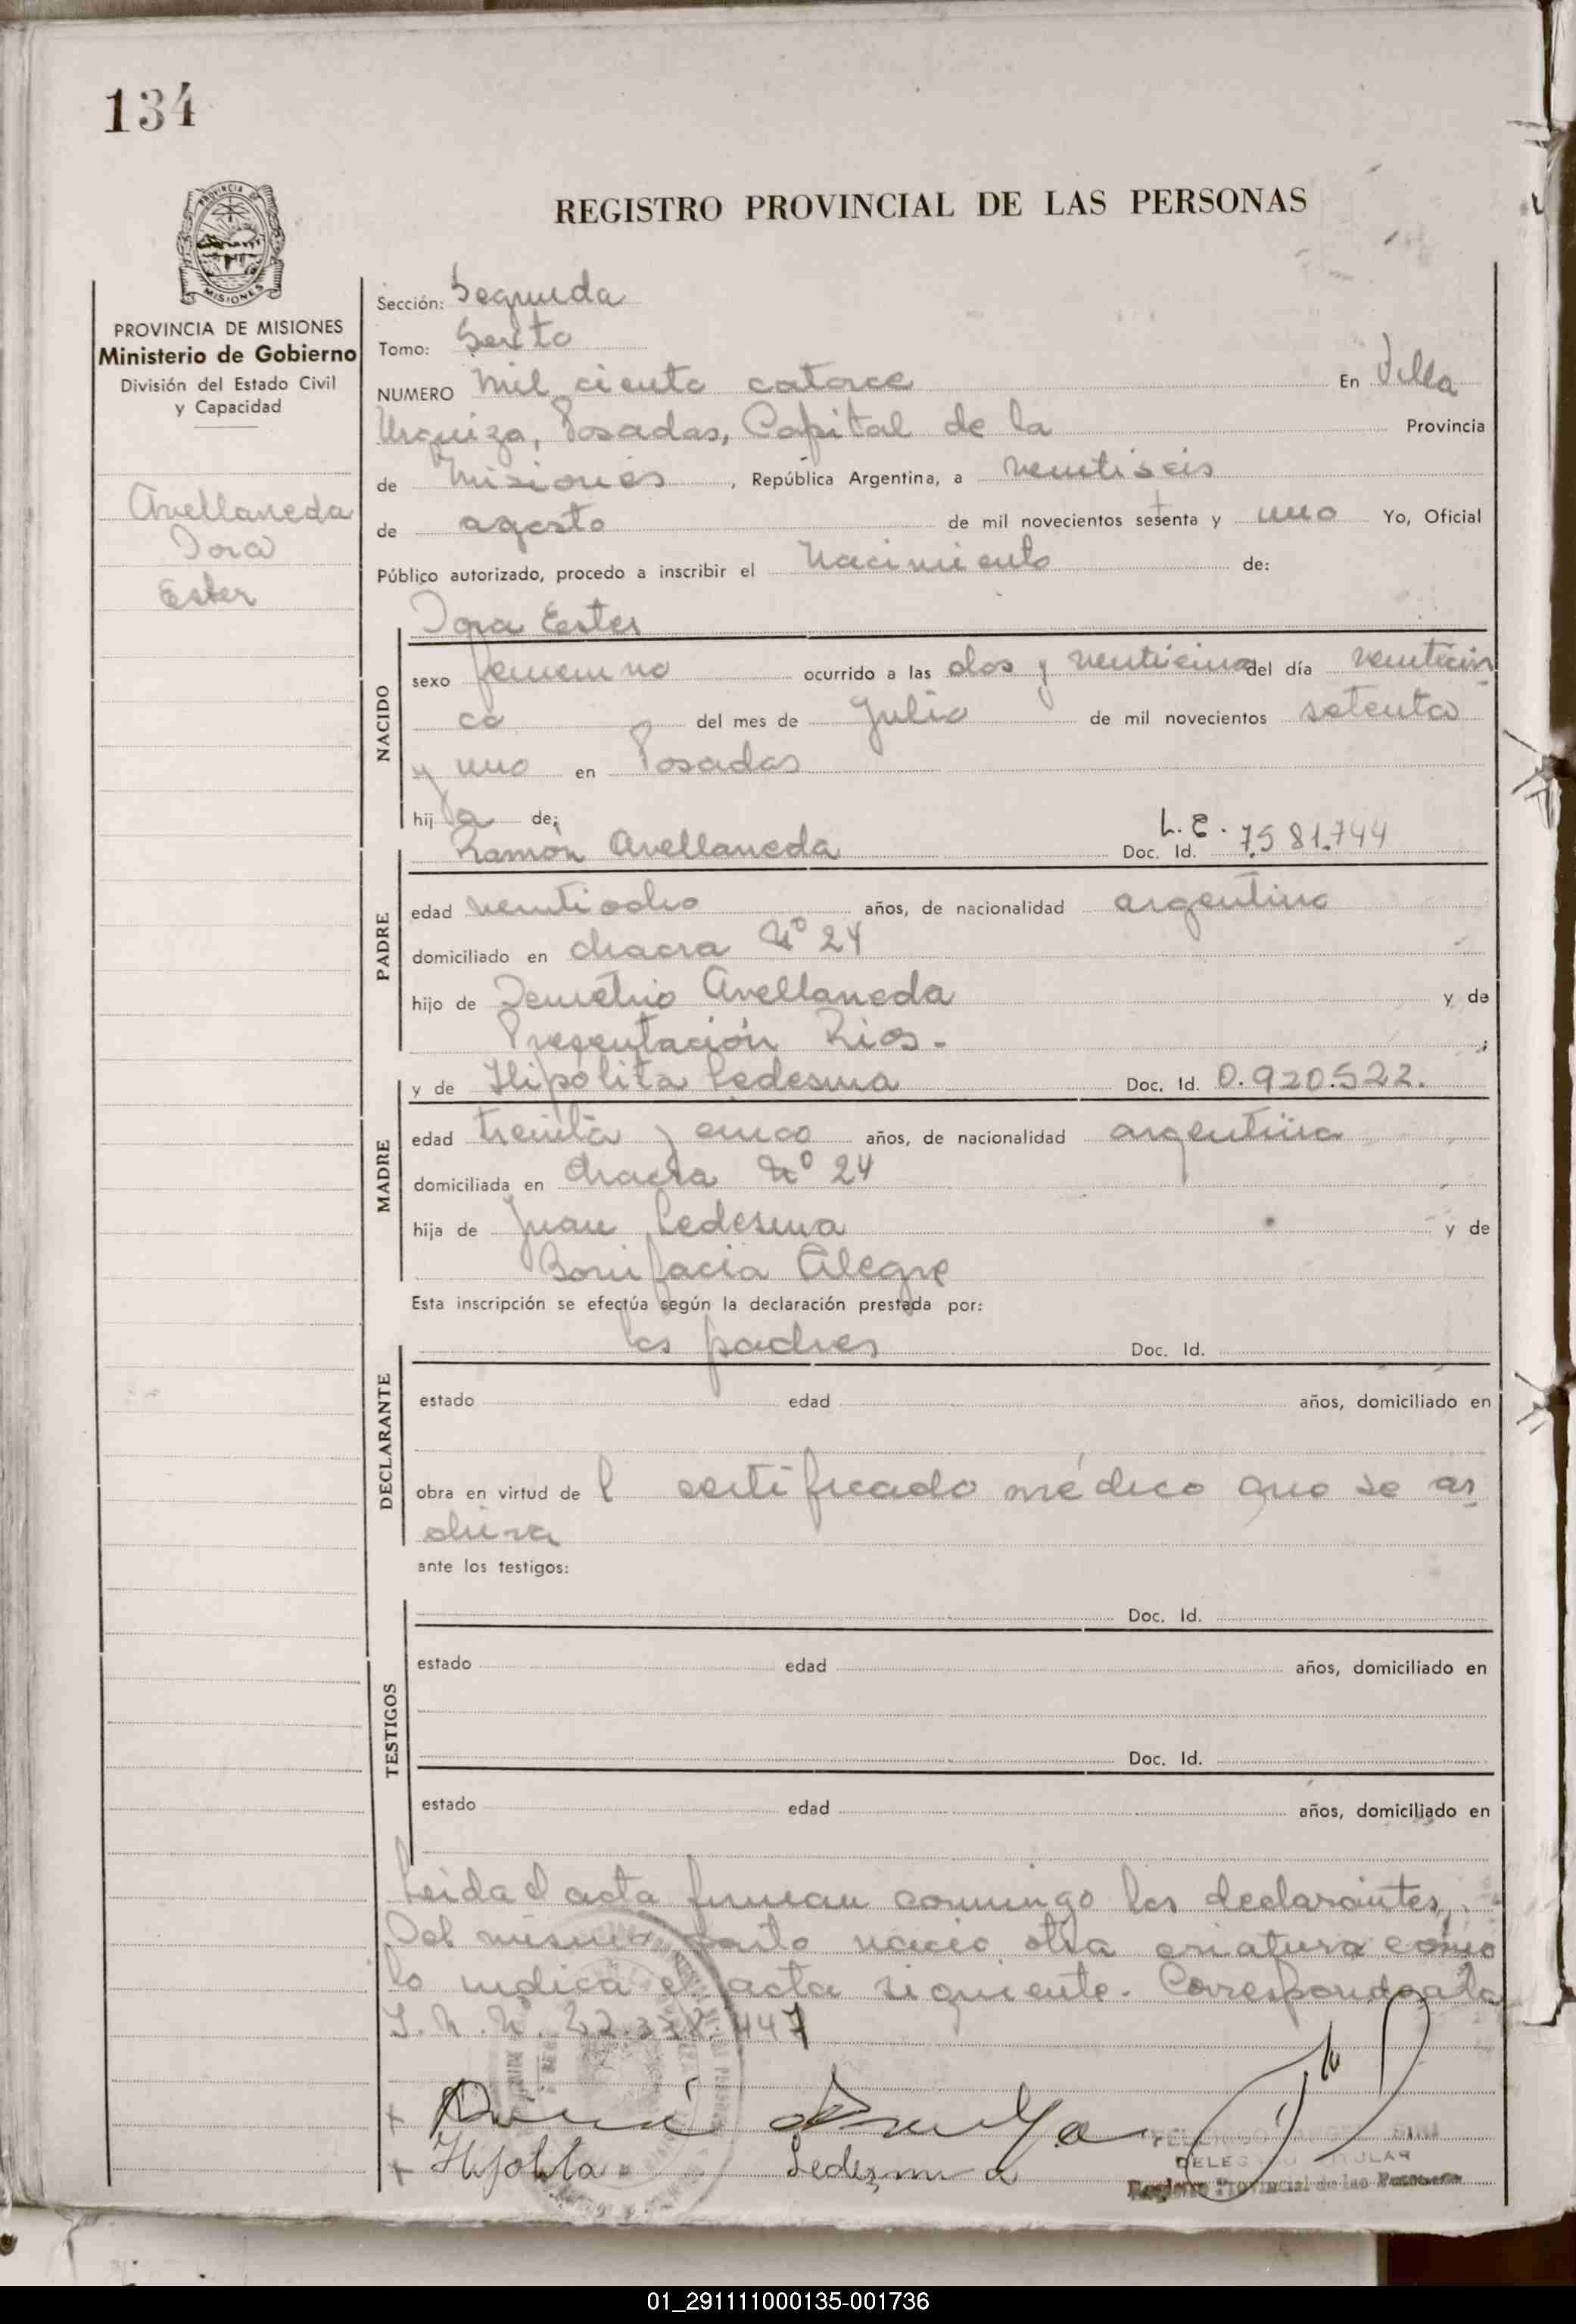 134
PROVINCIA DE MISIONES
REGISTRO PROVINCIAL DE LAS PERSONAS
PROVINCIA DE MISIONES
Ministerio de Gobierno
División del Estado Civil
y Capacidad
Avellaneda
Dora
Ester
Sección: Segunda
Tomo: Sexto
NUMERO mil ciento catorce En Villa
Urquiza, Posadas, Capital de la Provincia
de Misiones, República Argentina, a veintiseis
de agosto de mil novecientos setenta y uno Yo, Oficial
Público autorizado, procedo a inscribir el Nacimiento de:
Dora Ester
NACIDO
sexo femenino ocurrido a las dos y veinticinco del día veinticin
co del mes de Julio de mil novecientos setenta
y uno en Posadas
hij a de;
Ramón Avellaneda Doc. Id. L.E. 7.581.744
PADRE
edad veintiocho años, de nacionalidad argentina
domiciliado en chacra Nº 24
hijo de Demetrio Avellaneda y de
Presentación Rios.- ;
y de Hipólita Ledesma Doc. Id. 0.920.522.
MADRE
edad treinta y cinco años, de nacionalidad argentina
domiciliada en chacra Nº 24
hija de Juan Ledesma y de
Bonifacia Alegre
Esta inscripción se efectúa según la declaración prestada por:
los padres Doc. Id.
DECLARANTE
estado edad años, domiciliado en
obra en virtud de l certificado médico que se ar
chiva
ante los testigos:
Doc. Id.
TESTIGOS
estado edad años, domiciliado en
Doc. Id.
estado edad años, domiciliado en
Leida el acta firman conmigo los declarantes,
Del mismo parto nació otra criatura como
lo indica el acta siguiente. Corresponde a la
I.N.N.
Hipolita Ledezma
DELEGADO TITULAR
Registro Provincial de las Personas
01_291111000135-001736